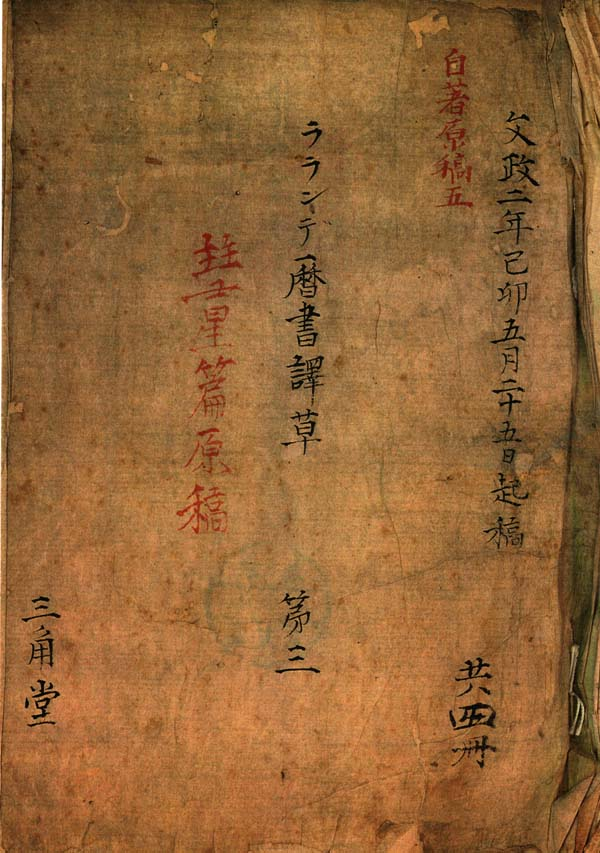 文政二年己卯五月二十五日起稿
共四冊
自著原稿五
ラランデ暦書譯草
第三
彗星篇原稿
三角堂